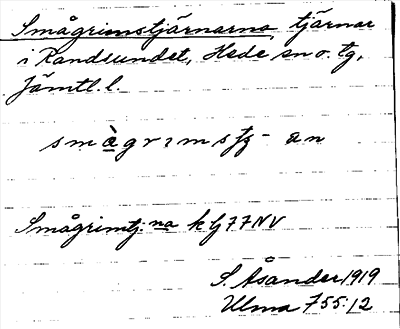 Smågrimstjärnarna, tjärnar
i Randsundet, Hede sn o. tg,
Jämtl. l.
Smågrimtj:na k bl 77 NV
S. Åsander 1919
Ulma 755:12